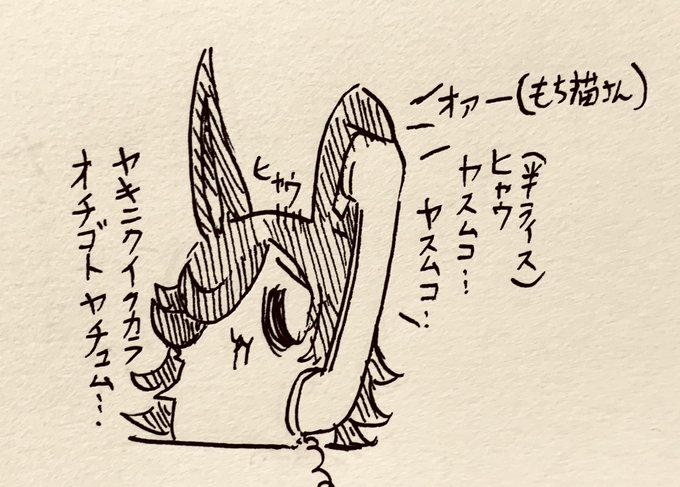 オァー(もち猫さん)
(半ライス)
ヒャウ
ヤスムコ…
ヤスムコ…
ヒャウ
ヤキニクイクカラ
オチゴト ヤチュム…